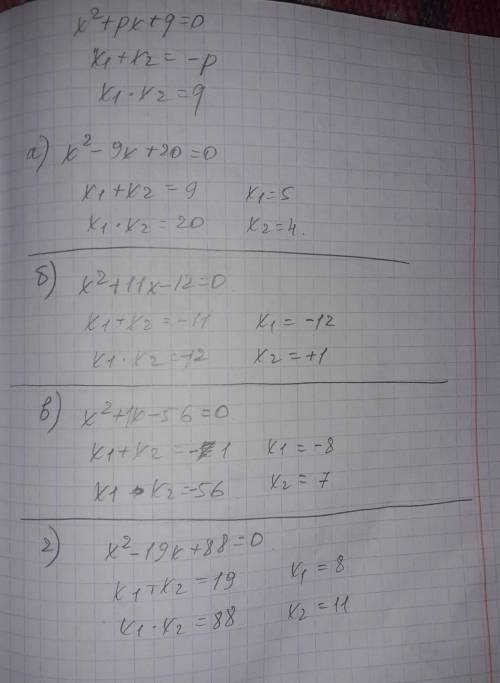 x²+px+q=0
x1+x2=-p
x1·x2=q
а) x²-9x+20=0
x1+x2=9 x1=5
x1·x2=20 x2=4.
б) x²+11x-12=0
x1+x2=-11 x1=-12
x1·x2=-12 x2=+1
в) x²+1x-56=0
x1+x2=-1 x1=-8
x1·x2=-56 x2=7
г) x²-19x+88=0
x1+x2=19 x1=8
x1·x2=88 x2=11